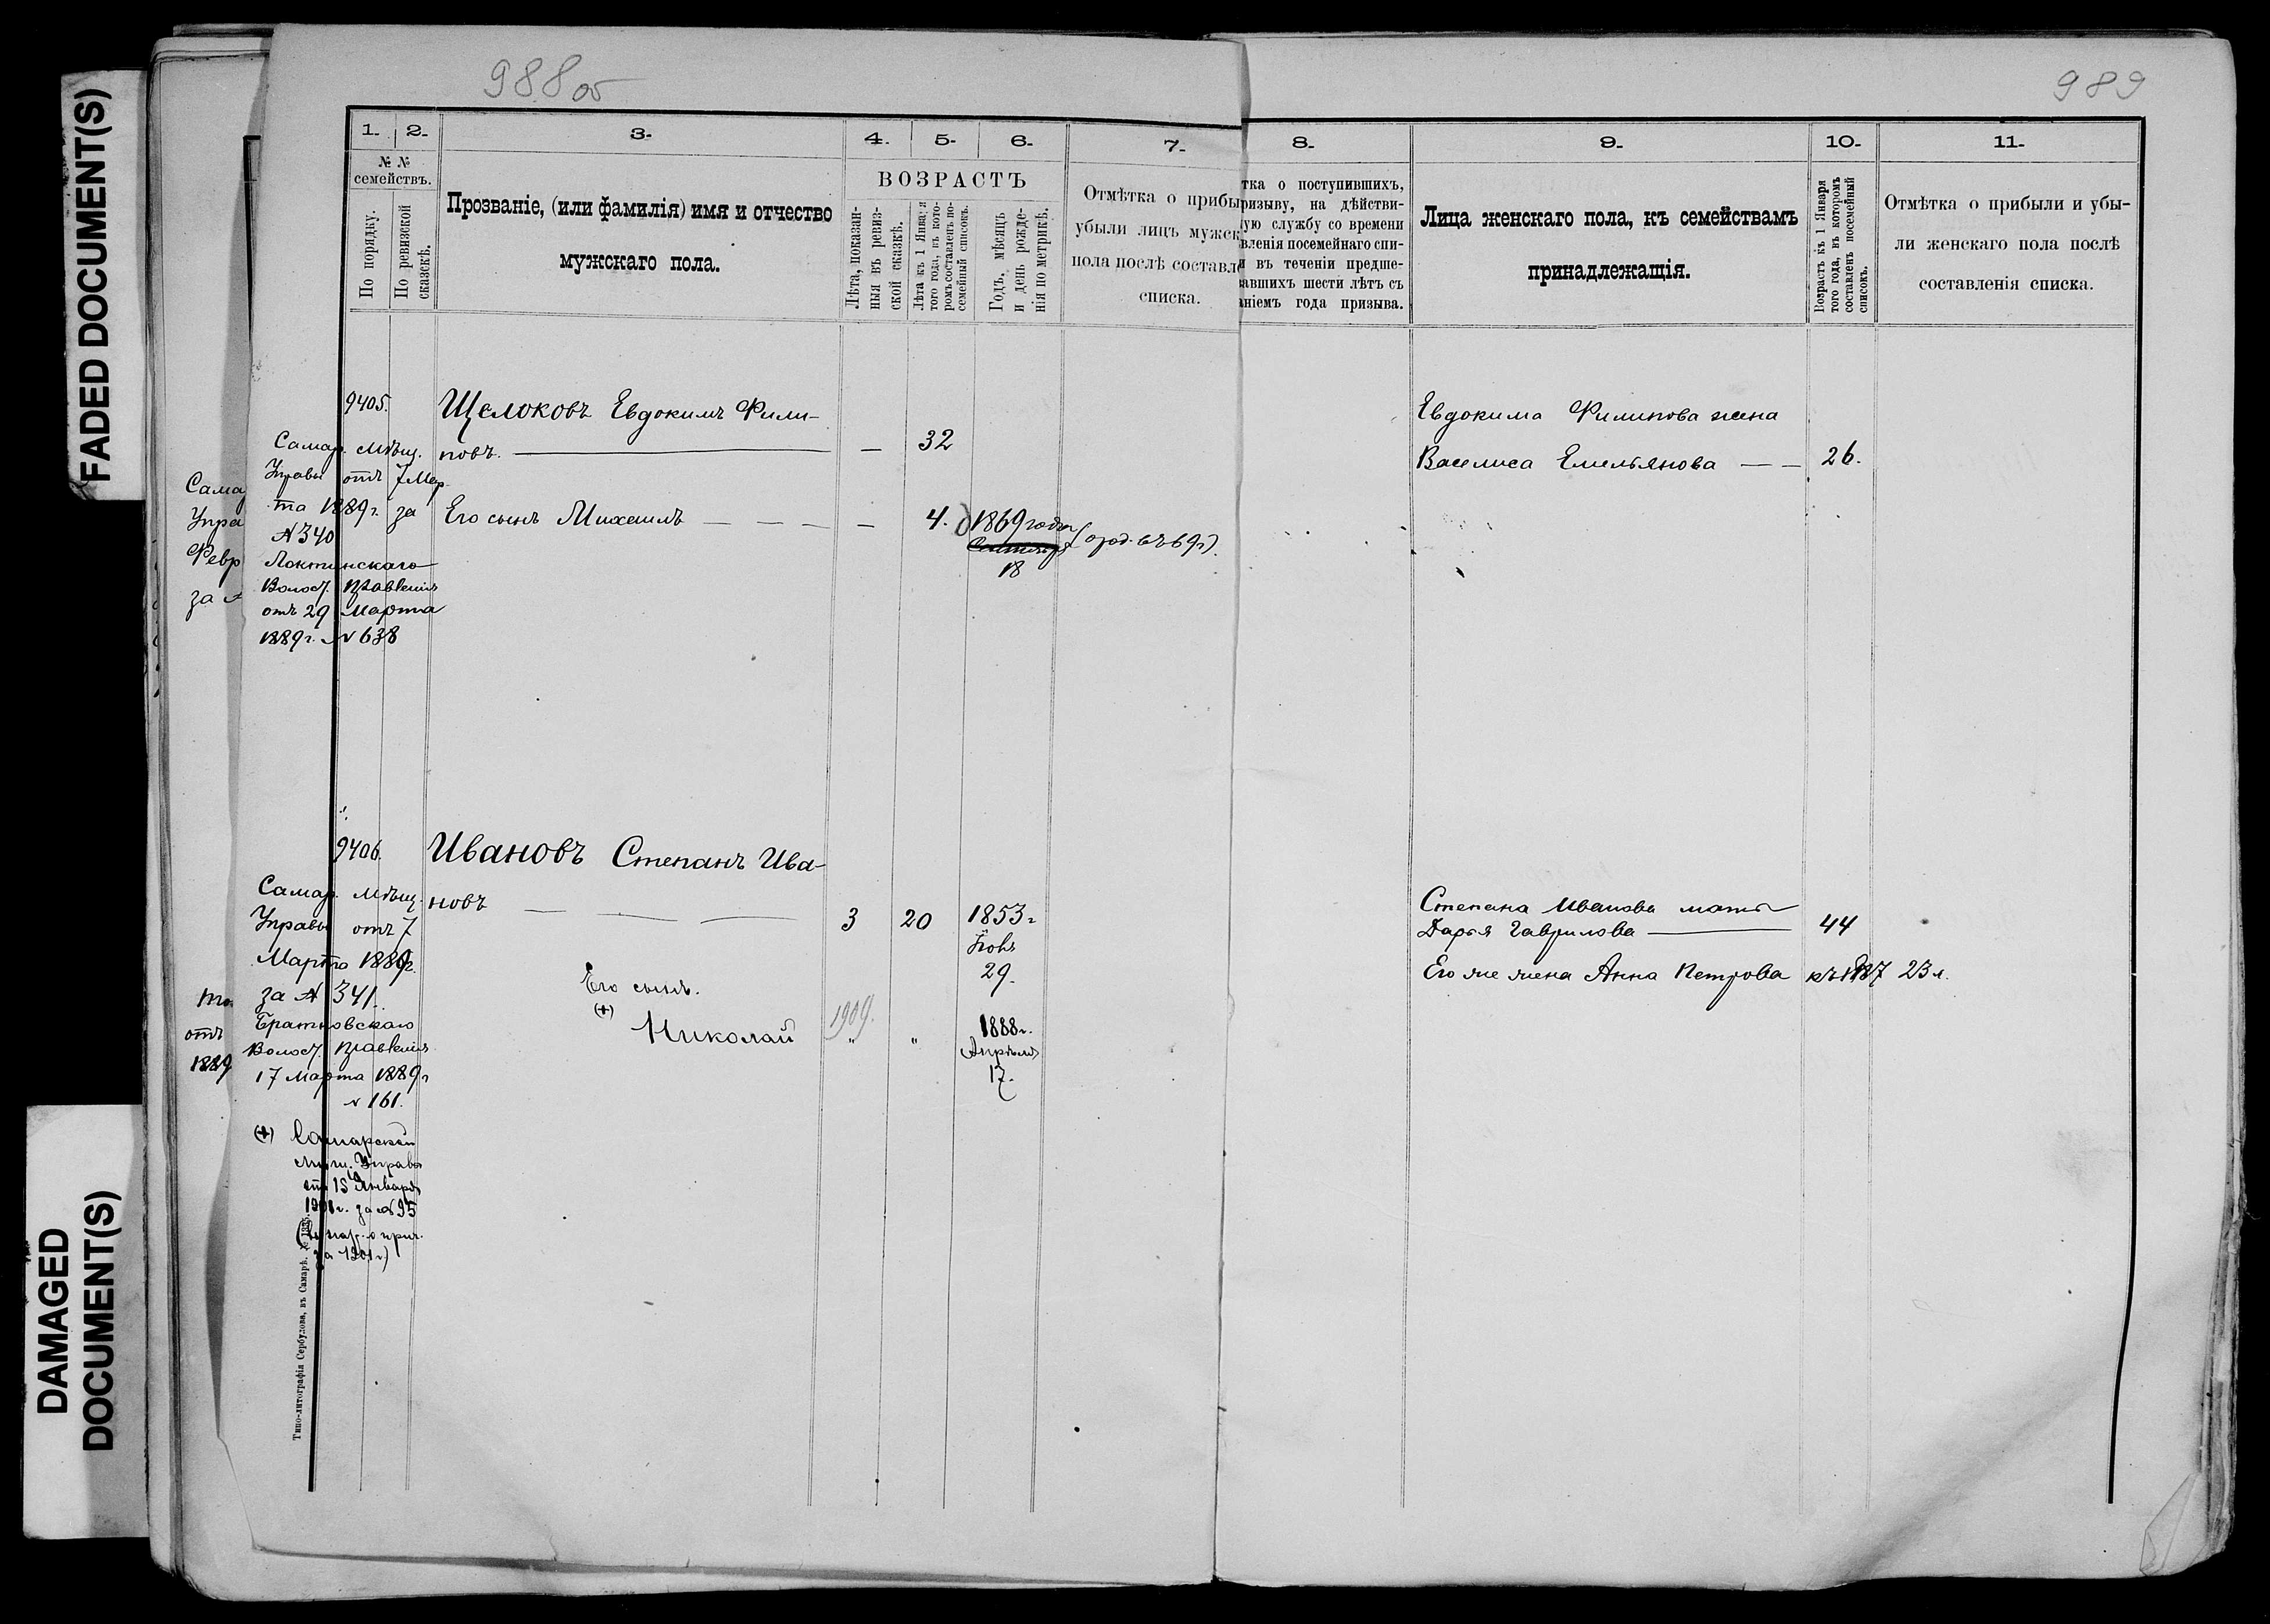 FADED DOCUMENT(S)
DAMAGED
DOCUMENT(S)
988 об
1. 2. 3. 4. 5. 6. 7.
№ №
семействъ.
По порядку.
По ревизской
сказскѣ.
Прозваніе, (или фамилія) имя и отчество
мужскаго пола.
ВОЗРАСТЪ
Лѣта, показан-
ныя въ ревиз-
ской сказкѣ.
Лѣта къ 1 Января
того года, въ кото-
ромъ составленъ по-
семейный списокъ.
Годъ, мѣсяцъ
и день рожде-
нія по метрикѣ.
Отмѣтка о прибы
убыли лицъ мужск
пола послѣ составл
списка.
9405. Щелоковъ Евдокимъ Фили-
повъ. — — 32
Самар. Мѣщ.
Управы отъ 7 Мар
та 1889 г. за
№ 340
Локтинскаго
Волос. Правленія
отъ 29 Марта
1889 г. № 638
Его сынъ Михаилъ — — — — 4. 1869 года
18
Сама
Упра
Февр
за №
9406. Ивановъ Степанъ Ива-
новъ — — — 3 20 1853 г
Ноя
29.
Самар. Мѣщ.
Управы отъ 7
Марта 1889 г.
за № 341.
Волос. Правленія
17 Марта 1889 г
№ 161.
Его сынъ.
(+) Николай 1909. " " 1888 г.
Апрѣля
17.
отъ
1889
(+) Самарской
Мѣщ. Управы
отъ 15 Января
1901 г. за № 95
за 1901 г)
Типо-литографія Сербулова, въ Самарѣ.
989
8. 9. 10. 11.
тка о поступившихъ,
ризыву, на дѣйстви-
ую службу со времени
вленія посемейнаго спи-
и въ теченіи предше-
авшихъ шести лѣтъ съ
аніемъ года призыва.
Лица женскаго пола, къ семействамъ
принадлежащія.
Возрастъ къ 1 Января
того года, въ которомъ
составленъ посемейный
списокъ.
Отмѣтка о прибыли и убы-
ли женскаго пола послѣ
составленія списка.
Евдокима Филипова жена
Василиса Емельянова — — 26.
Степана Иванова мать
Дарья Гаврилова — 44
Его же жена Анна Петрова къ 1887 23 л.